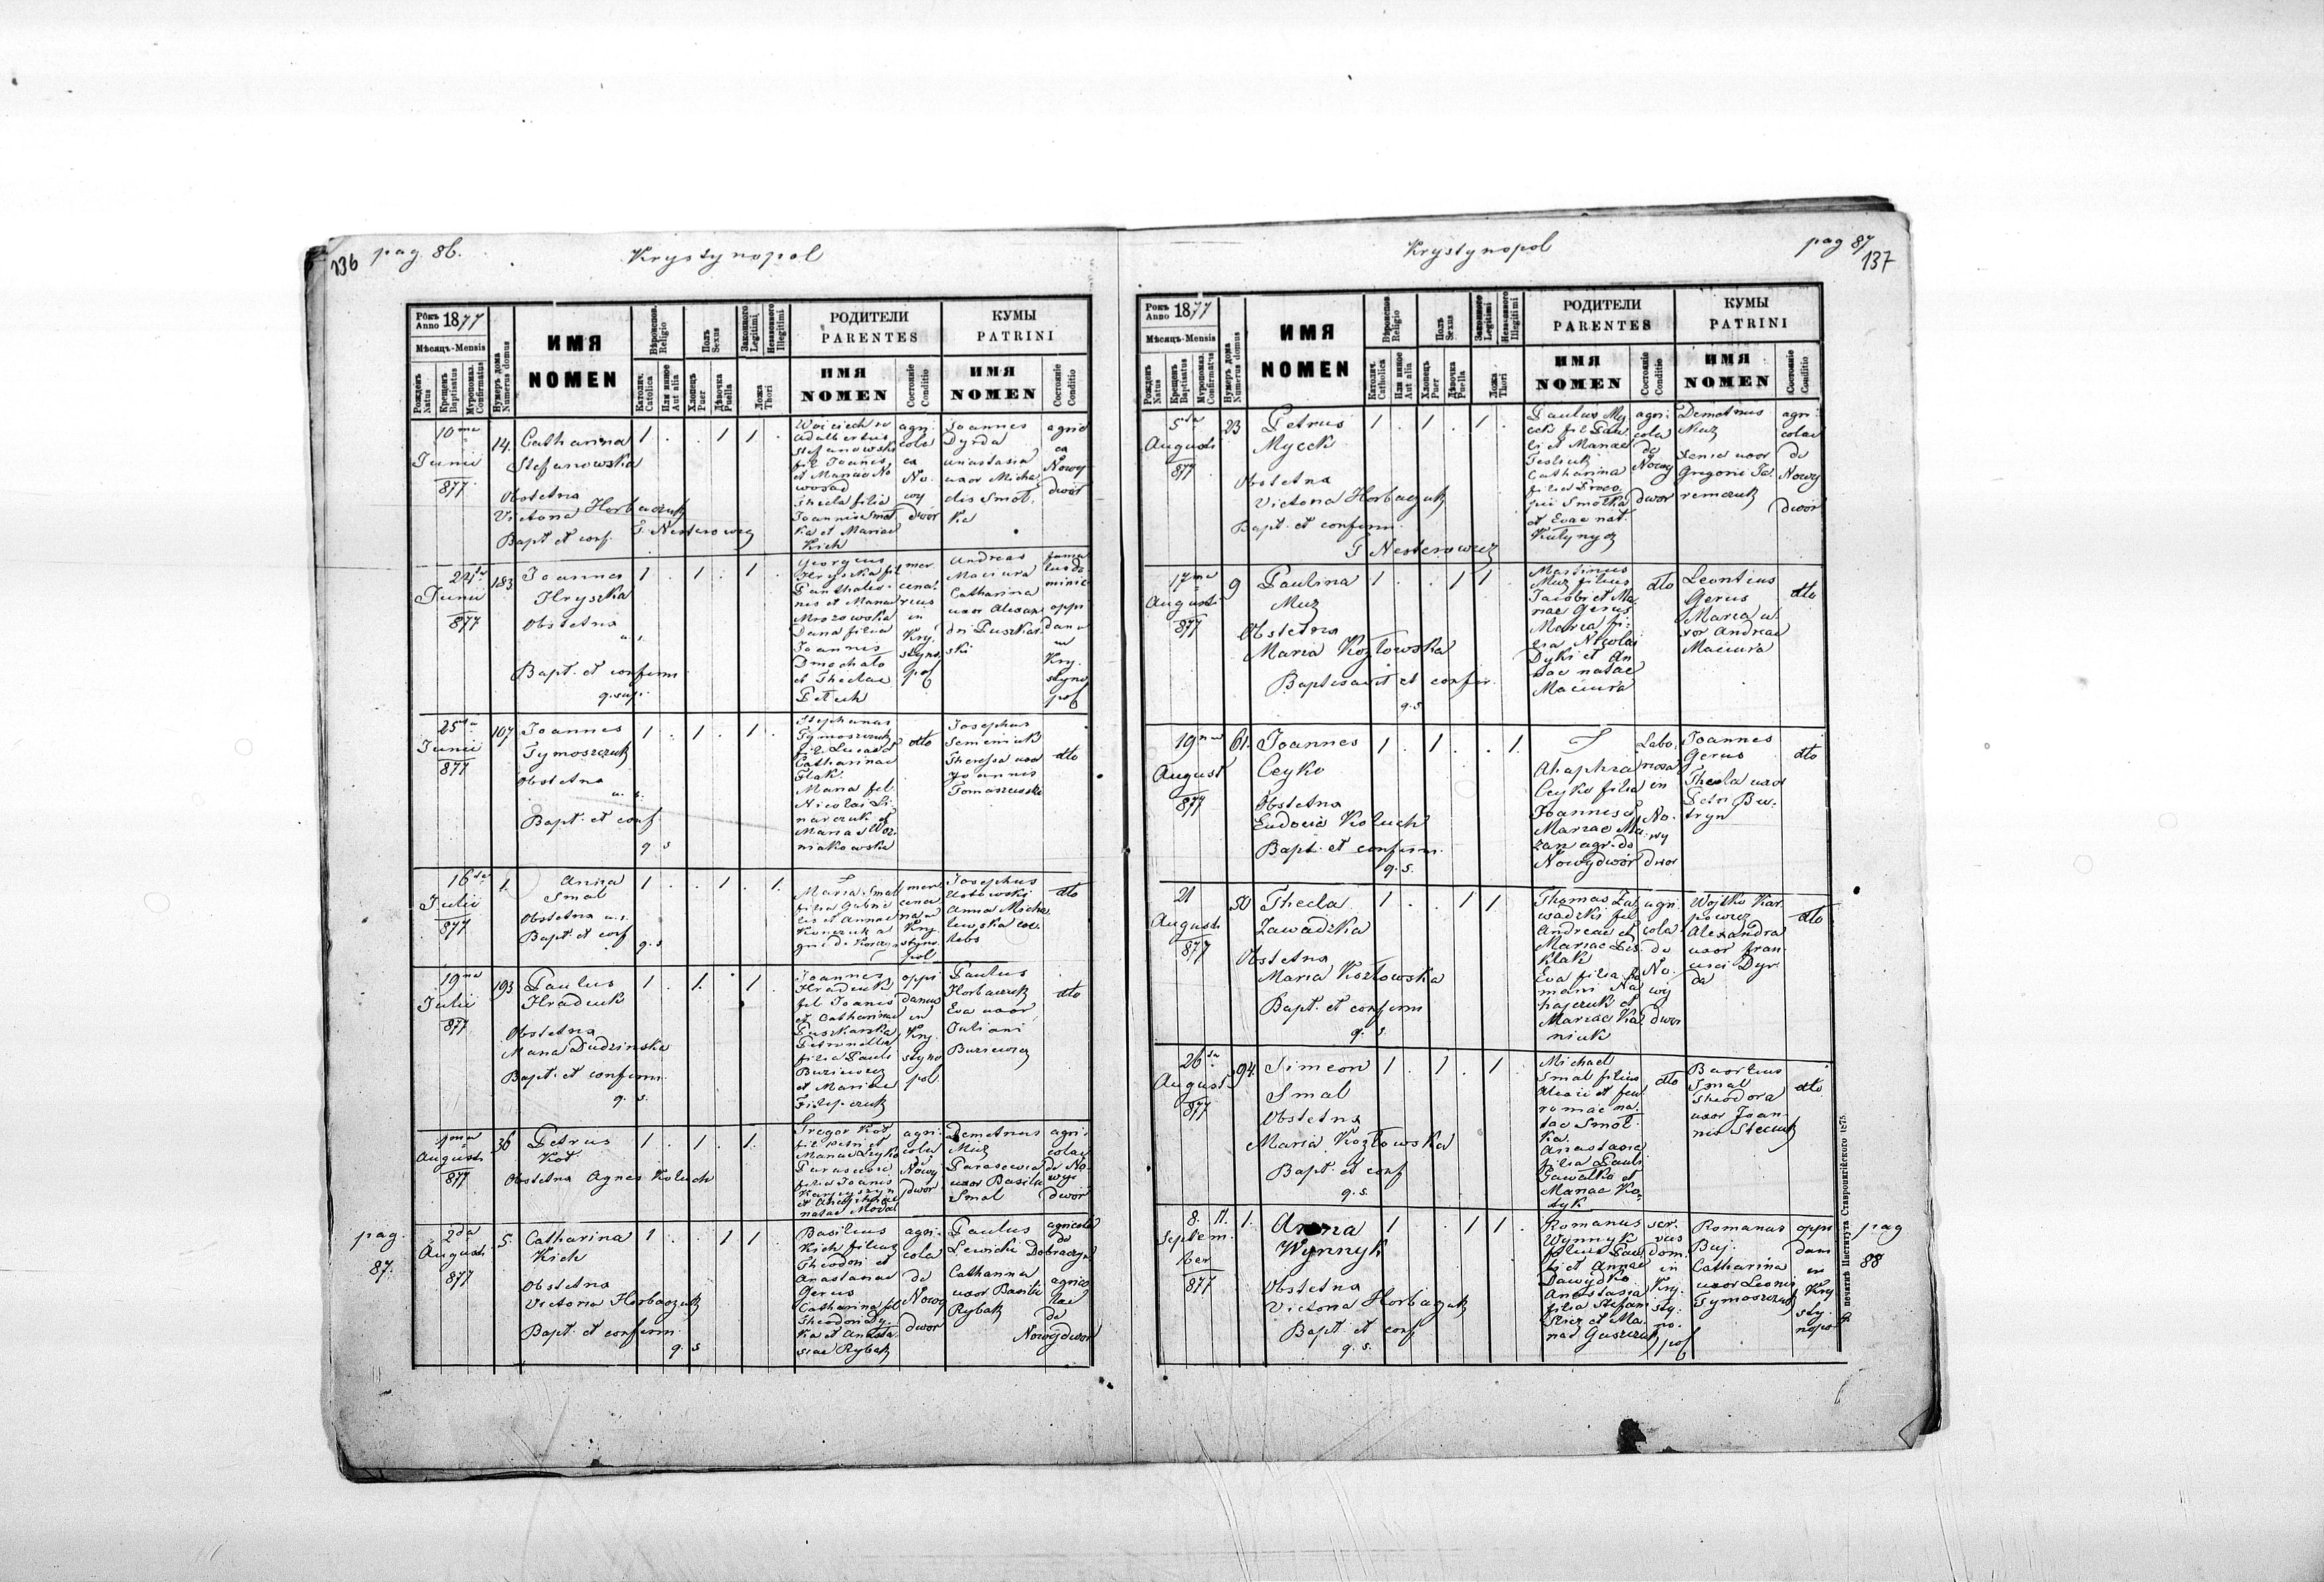 136 pag. 86.
Krystynopol
Рôкъ Anno 1877
Мѣсяцъ-Mensis
Рожденъ Natus
Крещенъ Baptisatus
Муропомаз. Confirmatus
Нумеръ дома Numerus domus
ИМЯ
NOMEN
Вѣроиспов. Religio
Католич. Catolica
Или иное Aut alia
Полъ Sexus
Хлопецъ Puer
Дѣвочка Puella
Законного Legitimi
Незаконного Illegitimi
Ложа Thori
РОДИТЕЛИ
PARENTES
ИМЯ
NOMEN
Состояніе Conditio
КУМЫ
PATRINI
ИМЯ
NOMEN
Состояніе Conditio
10ma
Junii
877
14.
Catharina
Stefanowska
Obstetrix
Victoria Horbaczuk
Bapt et conf. T. Nesterowicz
1 . . 1 1 .
Adalbertus
Stefanowski
fil Joannis
et Mariae No
wosad
Thecla filia
Joannis Smol
ka et Mariae
Kich
agri
cola
ex
No
wy
dwór
Joannes
Dyrda
Anastasia
uxor Micha
elis Smol
ka
Nowy
dwór
24ta
Junii
877
183
Joannes
Hryszka
Obstetrix
u. s.
Bapt. et confirm
q. sup.
1 . 1 . 1 .
Georgius
Hryszka fil
Panthaleo-
nis et Maria
Mrozowska
Dana filia
Joannis
Dmochalo
et Theclae
Petech
mer
cena
rius
in
Kry
styno
pol
Andreas
Maciura
Catharina
uxor Alexan
dri Puszkar
ski
famu
lus do
minic
oppi
dana
in
Kry.
styno
pol
25ta
Junii
877
107
Joannes
Tymoszczuk
Obstetrix
u. s.
Bapt. et conf
q. s
1 . 1 . 1 .
Stephanus
Tymoszczuk
fil. Lucas et
Catharinae
Flak.
Maria fil.
Nicolai Li
narczuk et
Maria Woz
niakowska
dto
Josephus
Semeniuk
Theresia uxor
Joannis
Tomaszewski
dto
16ta
Julii
877
1.
Anna
Smal
Obstetrix u. s.
Bapt. et conf
q. s
1 . . 1 . 1.
Maria Smal
filia Gabrie
lis et Annae
mer
cena
ria
Kry
styno
pol
Josephus
Anna Micha
lewska cae
lebs
dto
19ma
Julii
877
193
Paulus
Hradiuk
Obstetrix
Maria Dudzinska
Bapt. et confirm.
q. s.
1 . 1 . 1 .
Joannes
Hradiuk
fil Joannis
et Catharinae
Puszkarska
Petronella
filia Pauli
Buziewicz
et Mariae
Filipczuk
oppi
danus
in
Kry
styno
pol.
Paulus
Horbaczuk
Eva uxor
Juliani
Buziewicz
dto
1ma
Augusti
877
36
Petrus
Kot
Obstetrix Agnes Koluch
1 . 1 . 1 .
Gregor Kot
fil. Petri et
Mariae Ceyko
Parascevia
filia Joannis
natae Moval
agri
cola
Nowy
dwór
Demetrius
Muz
Parascevia
uxor Basilii
Smal
agri
colae
de No
wy
dwór
pag.
87.
2da
Augusti
877
5.
Catharina
Kich
Obstetrix
Victoria Horbaczuk
Bapt. et confirm
q. s
1 . . 1 1 .
Basilius
Kich filius
Theodori et
Anastasiae
Gerus
Catharina fil
Theodori Dy
ka et Anasta
siae Rybak
agri
cola
de
Nowy
dwor
Paulus
Lewicki
Catharina
uxor Basilii
Rybak
agricola
de
Dobraczyn
agrico
lae
de
Nowydwor
Krystynopol
pag 87
137
Рокъ Anno 1877
Мѣсяцъ-Mensis
Рожденъ Natus
Крещенъ Baptisatus
Муропомаз. Confirmatus
Нумеръ дома Numerus domus
ИМЯ
NOMEN
Вѣроиспов. Religio
Католич. Catholica
Или иное Aut alia
Полъ Sexus
Хлопецъ Puer
Дѣвочка Puella
Законного Legitimi
Незаконного Illegitimi
Ложа Thori
РОДИТЕЛИ
PARENTES
ИМЯ
NOMEN
Состояніе Conditio
КУМЫ
PATRINI
ИМЯ
NOMEN
Состояніе Conditio
5ta
Augusti
877
23
Petrus
Mycek
Obstetrix
Victoria Horbaczuk
Bapt. et confirm.
T Nesterowicz
1 . 1 . 1 .
Paulus My
cek fil Pau
li et Mariae
Teslick
Catharina
filia Proco
pii Smolka
et Evae nat.
Kulynycz
agri
cola
de
Nowy
dwor
Demetrius
Muz
Xenia uxor
Gregorii Ja
remczuk
agri
colae
de
Nowy
dwór
17ma
Augusti
877
9
Paulina
Muz
Obstetrix
Maria Kozłowska
Baptisavit et confir.
q. s
1 . . 1 1 .
Martinus
Muz filius
Jacobi et Ma
riae Gerus
Maria fi-
lia Nicolai
Dyki et An
nae natae
Maciura
dto
Leontius
Gerus
Maria u
xor Andreae
Maciura
dto
19na
August
877
61.
Joannes
Ceyko
Obstetrix
Eudocia Koluch
Bapt. et confirm.
q. s.
1 . 1 . . 1.
Ahaphia
Ceyko filia
Joannis et
Mariae Ma
zan agr. de
Nowydwór
Labo
riosa
in
No
wy
dwor
Joannes
Gerus
Thecla uxor
Petri Bu
tryn
dto
21
Augusti
877
50
Thecla
Zawadzka
Obstetrix
Maria Kozłowska
Bapt. et confirm
q. s.
1 . . 1 1
Thomas Za
wadzki fil
Andreae et
Mariae Lis
klak
Eva filia Ro
mani Na
hajczuk et
Mariae Ka
niuk
agri
cola
de
No
wy
dwor
Wojtko Kar
powicz
Alexandra
uxor Fran
cisci Dyr
da
dto
26ta
Augusti
877
94.
Simeon
Smal
Obstetrix
Maria Kozłowska
Bapt. et conf
q. s.
1 . 1 . 1 .
Michael
Smal filius
Alexii et Feu
roniae na
tae Smol
ka.
Anastasia
filia Pauli
Gawalko et
Mariae Ko-
dyk
dto
Smal
Theodora
uxor Joan
nis Steciuk
dto
8. 11.
Septem
ber
877
1.
Anna
Wynnyk
Obstetrix
Victoria Horbaczuk
Bapt. et conf
q. s.
1 . . 1 1 .
Romanus
Wynnyk
filius Pau
li et Annae
Dawydko
Anastasia
filia Stefani
Kicz et Ma
riae Guszczuk
ser
vus
dom.
in
Kry
sty
no
pol
Romanus
Buj.
Catharina
uxor Leonis
Tymoszczuk
oppi
dani
in
Kry
sty
nopo
pag
88
Ф печатнѣ Института Ставропигійского 1875.